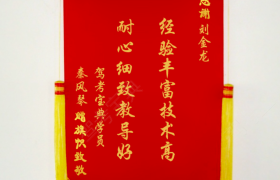 感谢刘金龙
经验丰富技术高
耐心细致教导好
驾考宝典学员
秦风琴 赠旗帜致敬